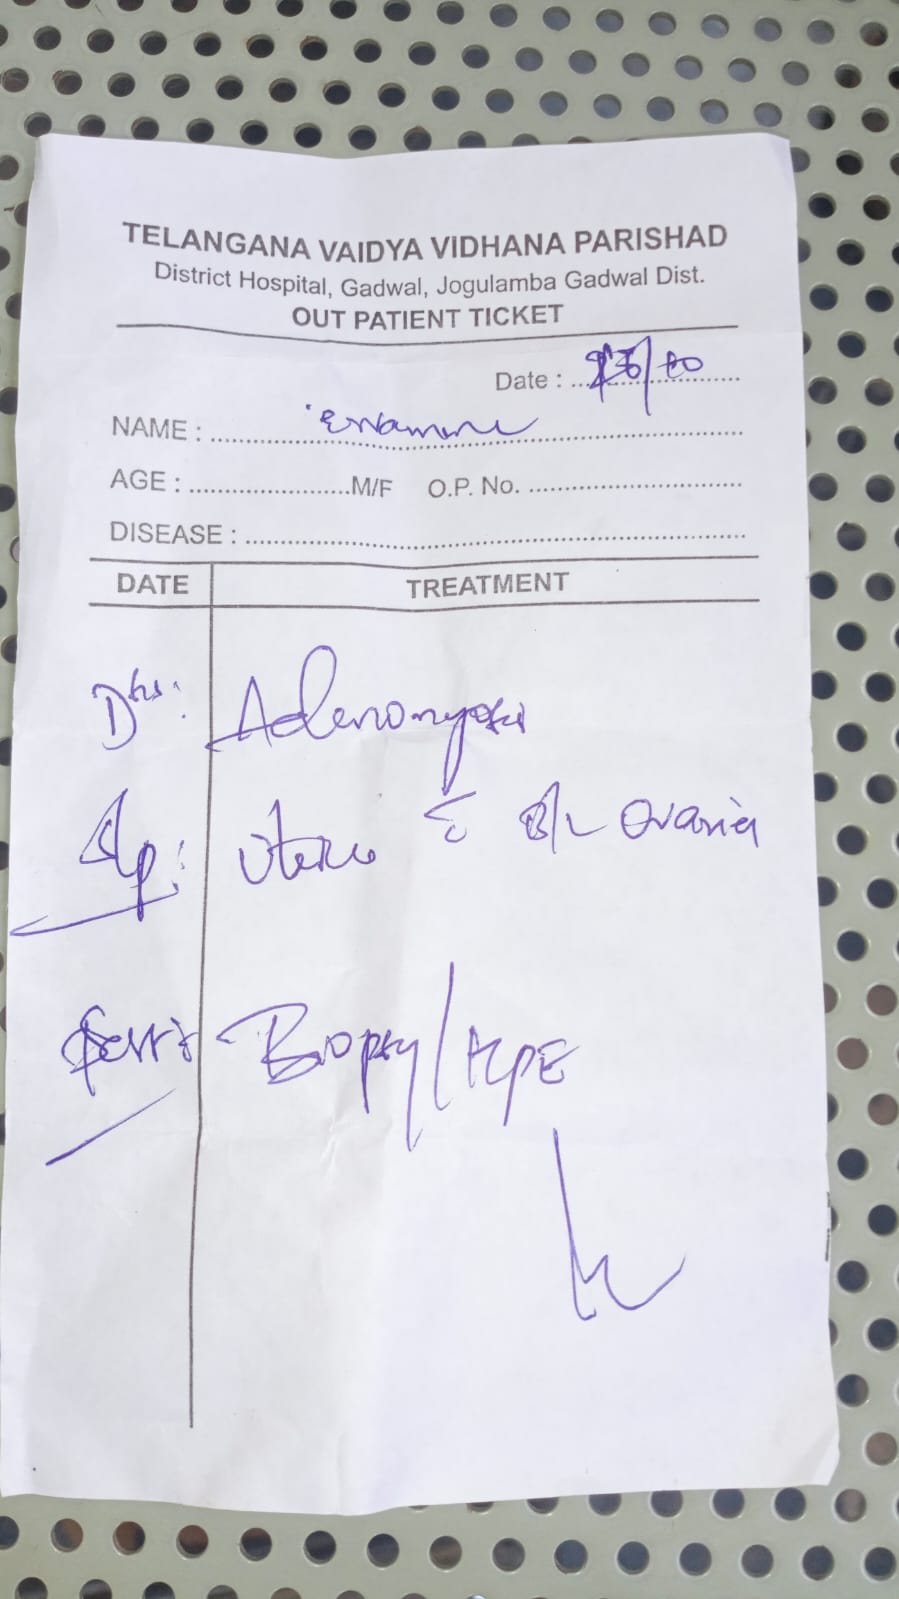 TELANGANA VAIDYA VIDHANA PARISHAD
District Hospital, Gadwal, Jogulamba Gadwal Dist.
OUT PATIENT TICKET
Date :
NAME :
AGE : M/F O.P. No.
DISEASE :
DATE TREATMENT
Adenomyosis
Sp: Uterus c̄ B/L Ovaries
Biopsy/HPE